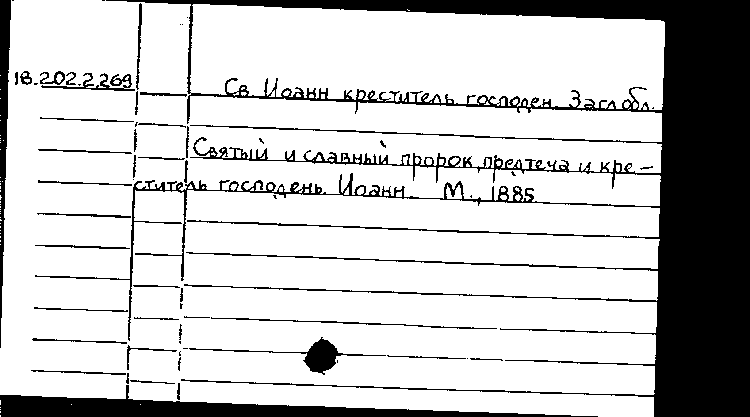 18.202.2.269
Св. Иоанн креститель господен. Загл обл.
Святый и славный пророк, предтеча и кре-
ститель господень Иоанн М., 1885